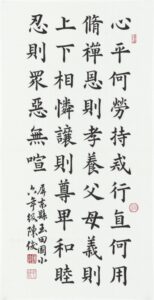 心平何勞持戒行直何用
脩禪恩則孝養父母義則
上下相憐讓則尊卑和睦
忍則眾惡無喧
屏東縣玉田國小
六年級陳